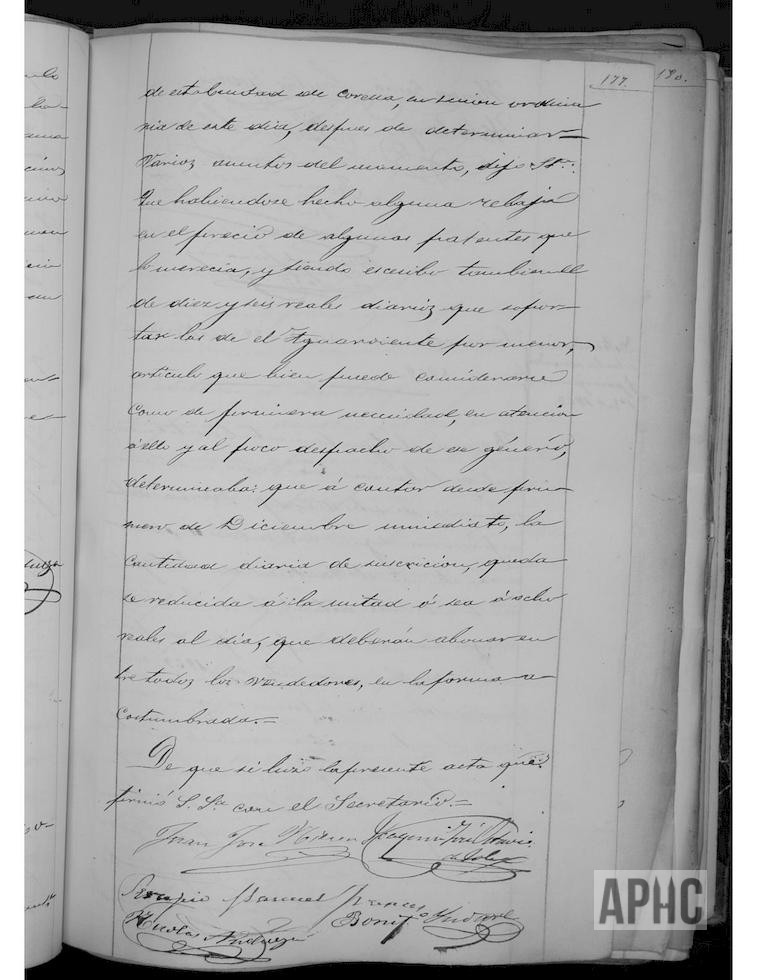 177. 180.
de esta Ciudad de Corella, en sesion ordina
ria de este dia, despues de determinar=
Varios asuntos del momento, dijo S.S.ª:
Que habiendose hecho alguna rebaja
en el precio de algunas patentes que
lo merecia, y siendo escesibo tambien el
de diez y seis reales diarios que sopor-
tan los de el Aguardiente por menor,
artículo que bien puede considerarse
como de primera necesidad, en atencion
á ello y al poco despacho de ese género,
determinaba: que á contar desde pri-
mero de Diciembre inmediato, la
cantidad diaria de suscricion, queda
se reducida á la mitad ó sea á ocho
reales al dia, que deberán abonar en
tre todos los vendedores, en la forma a
costumbrada.=
De que se hizo la presente acta que
firmó S. S.ª con el Secretario.=
Juan Jose Joaquin José
Manuel
Nicolas Andueza Bonif.º
APHC